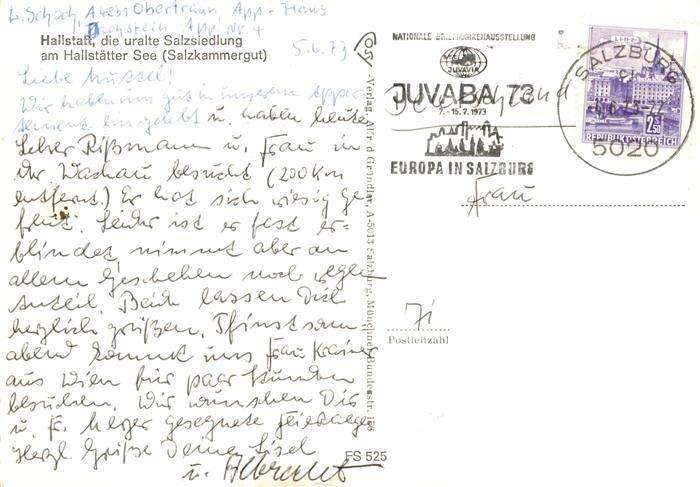 L. Schoch, A 4831 Obertraun, App.-Haus
Dachstein, App. Nr. 4
Hallstatt, die uralte Salzsiedlung
am Hallstätter See (Salzkammergut)
5.6.73
Liebe Mussel!
Wir haben uns gut in unserem Appar-
tement eingelebt u. haben heute
Lehrer Rißmann u. Frau in
der Wachau besucht (200 km
entfernt.) Er hat sich riesig ge-
freut. Leider ist er fast er-
blindet, nimmt aber an
allem Geschehen noch regen
Anteil. Beide lassen Dich
herzlich grüßen. Pfingstsonn
abend kommt uns Frau Krainer
aus Wien für paar Stunden
besuchen. Wir wünschen Dir
u. Fr. Meyer gesegnete Feiertage.
Herzl. Grüße Deine Lisel
u. Albrecht
FS 525
Verlag Alfr. d Gründler, A-5013 Salzburg, Münchner Bundesstr. 156
NATIONALE BRIEFMARKENAUSSTELLUNG
JUVAVIA
JUVABA 73
7.-15.7.1973
EUROPA IN SALZBURG
Deutschland
SALZBURG
5020
2.50
REPUBLIK ÖSTERREICH
Frau
7i
Postleitzahl